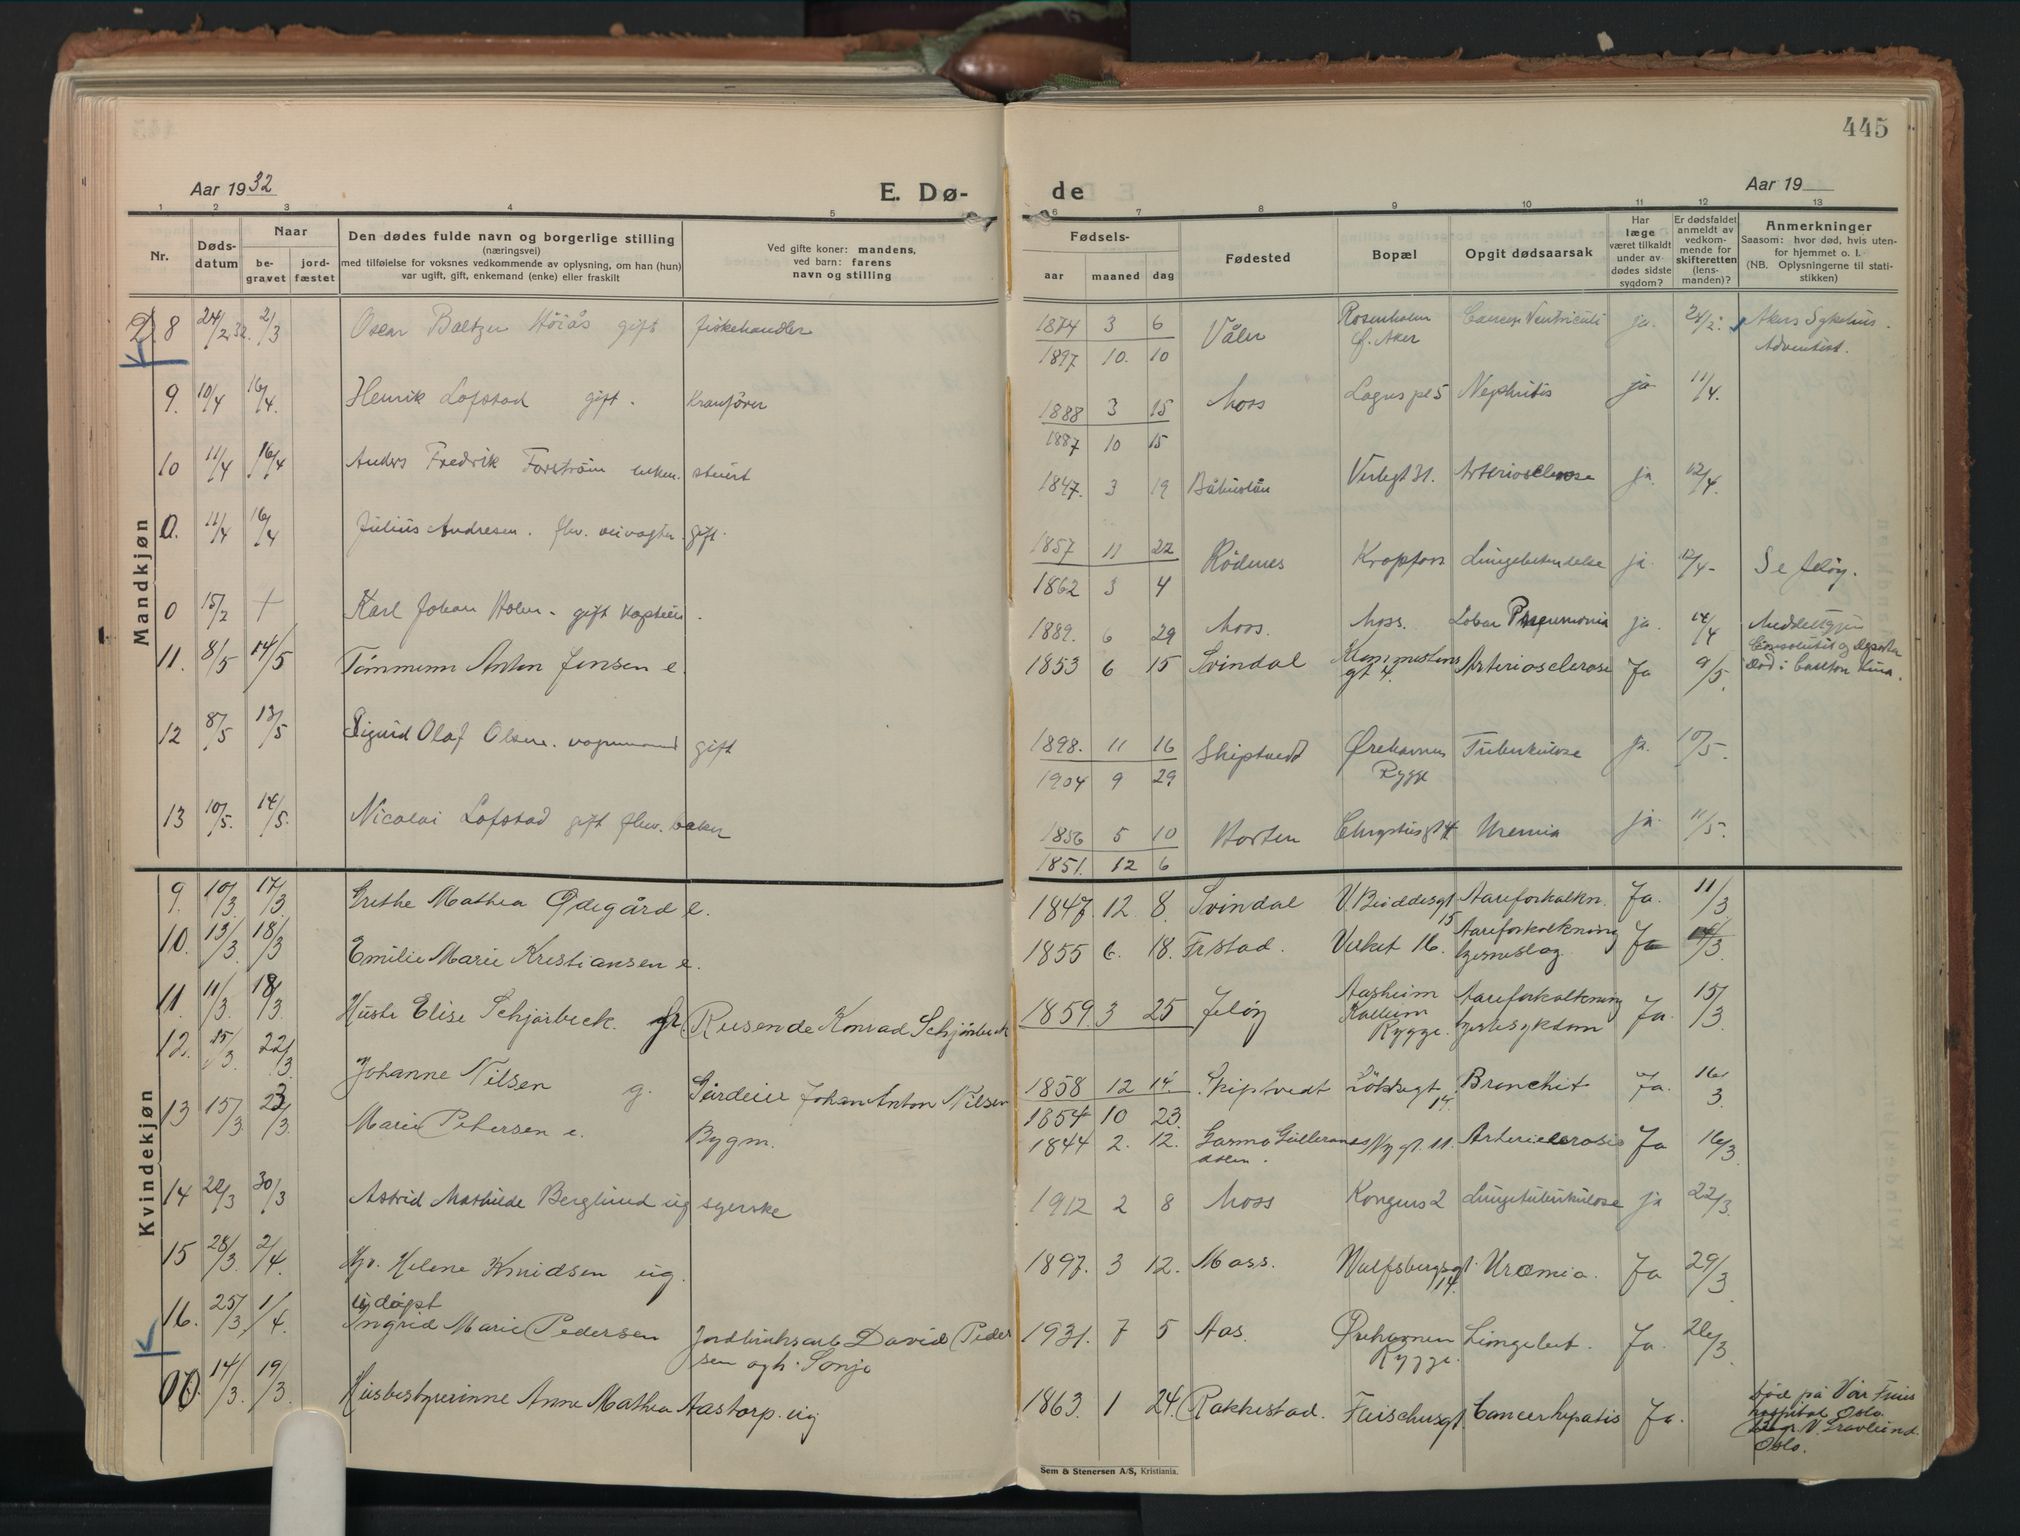 445
Aar 1932
E. Dø-
de
Aar 19
1 2 3 4 5 6 7 8 9 10 11 12 13
Nr.
Døds-
datum
Naar
be-
gravet
jord-
fæstet
Den dødes fulde navn og borgerlige stilling
(næringsvei)
med tilføielse for voksnes vedkommende av oplysning, om han (hun)
var ugift, gift, enkemand (enke) eller fraskilt
Ved gifte koner: mandens,
ved barn: farens
navn og stilling
Fødsels-
aar maaned dag
Fødested
Bopæl
Opgit dødsaarsak
Har
læge
været tilkaldt
under av-
dødes sidste
sygdom?
Er dødsfaldet
anmeldt av
vedkom-
mende for
skifteretten
(lens-
manden)?
Anmerkninger
Saasom: hvor død, hvis uten-
for hjemmet o. l.
(NB. Oplysningerne til stati-
stikken)
Mandkjøn
8 24/2 32. 2/3 Oscar Baltzer Höiås gift fiskehandler 1874 3 6 Våler Rosenholm Cancer Ventriculi ja. 24/2. Akers Sykehus.
Ø. Aker
1897 10. 10 Adventist.
9. 10/4 16/4. Henrik Lofstad gift. Kranfører 1888 3 15 Moss Lagespl 5 Nephritis ja 11/4.
1887 10 15
10 11/4 16/4 Anders Fredrik Forström enkem. stuert 1847. 3 19 Båhuslän Verlegt 31. Arteriosclerose ja. 12/4.
0. 11/4 16/4 Julius Andresen. fhv. veivogter gift. 1857 11 22 Rödenes Kropfors Lungebetendelse ja. 12/4- Se Jeløy.
1862 3 4
0 15/2 + Karl Johan Holm. gift kaptein. 1889. 6 29 Moss. Moss. Lobar Pneumonia ja. 14/4
11. 8/5 14/5 Tömmerm Anton Jensen e. 1853 6 15 Svindal gt 4. Arteriosclerose Ja 9/5. død i Canton Kina.
12 8/5 13/5 Sigurd Olaf Olsen. vognmand gift 1898. 11 16 Skiptvedt Ørehavnen Tuberkulose ja. 10/5.
1904 9 29 Rygge
13 10/5. 14/5. Nicolai Lofstad gift fhv. baker 1856 5 10 Horten Chrystiesgt 4 Uremia ja. 11/5.
1851. 12 6
Kvindekjøn
9. 10/3. 17/3. Grethe Mathea Ødegård e. 1847. 12. 8. Svindal V. Bröddesgt 15 Aareforkalkn. Ja. 11/3
10. 13/3 18/3 Emilie Marie Kristiansen e. 1855 6. 18. Frstad. Verket 16. Aareforkalkning Ja
hjerneslag.
11. 11/3. 18/3. Elise Schjørbeck. g. Reisende Konrad Schjørbeck 1859. 3 25 Jeløy Aasheim Aareforkalkning Ja. 15/3
Rygge. hjertesykdom
12. 15/3 22/3. Johanne Nilsen g. Gårdeier Johan Anton Nilsen 1858 12 14 Skiptvedt 14. Bronchit Ja. 16/3.
1854 10 23.
13 15/3 23/3. Marie Petersen e. Bygm. 1844 2. 12. Ny gt. 11. Arteriosclerosis Ja 16/3.
14 22/3 30/3 Astrid Mathilde Berglund ug syerske 1912 2 8 Moss Kongens 2 Lungetuberkulose ja 22/3.
15 28/3. 2/4. Hjv. Helene Knudsen ug. 1897. 3 12. Moss. Wulfsbergsgt. 14. Uræmia. Ja 29/3
udöpt
16. 25/3 1/4. Ingrid Marie Pedersen Jordbruksarb David Peder 1931. 7 5 Aas. Ørehavnen Lungebet. Ja. 26/3.
sen ogh. Sonja Rygge.
00. 14/3. 19/3. Husbestyrerinne Anne Mathea Aastorp. ug 1863. 1 24. Rakkestad. Fleischersgt. Cancer hepatis Ja. død på Vår Frues
hospital Oslo.
Begr. V. Gravlund.
Oslo.
Sem & Stenersen A/S, Kristiania.